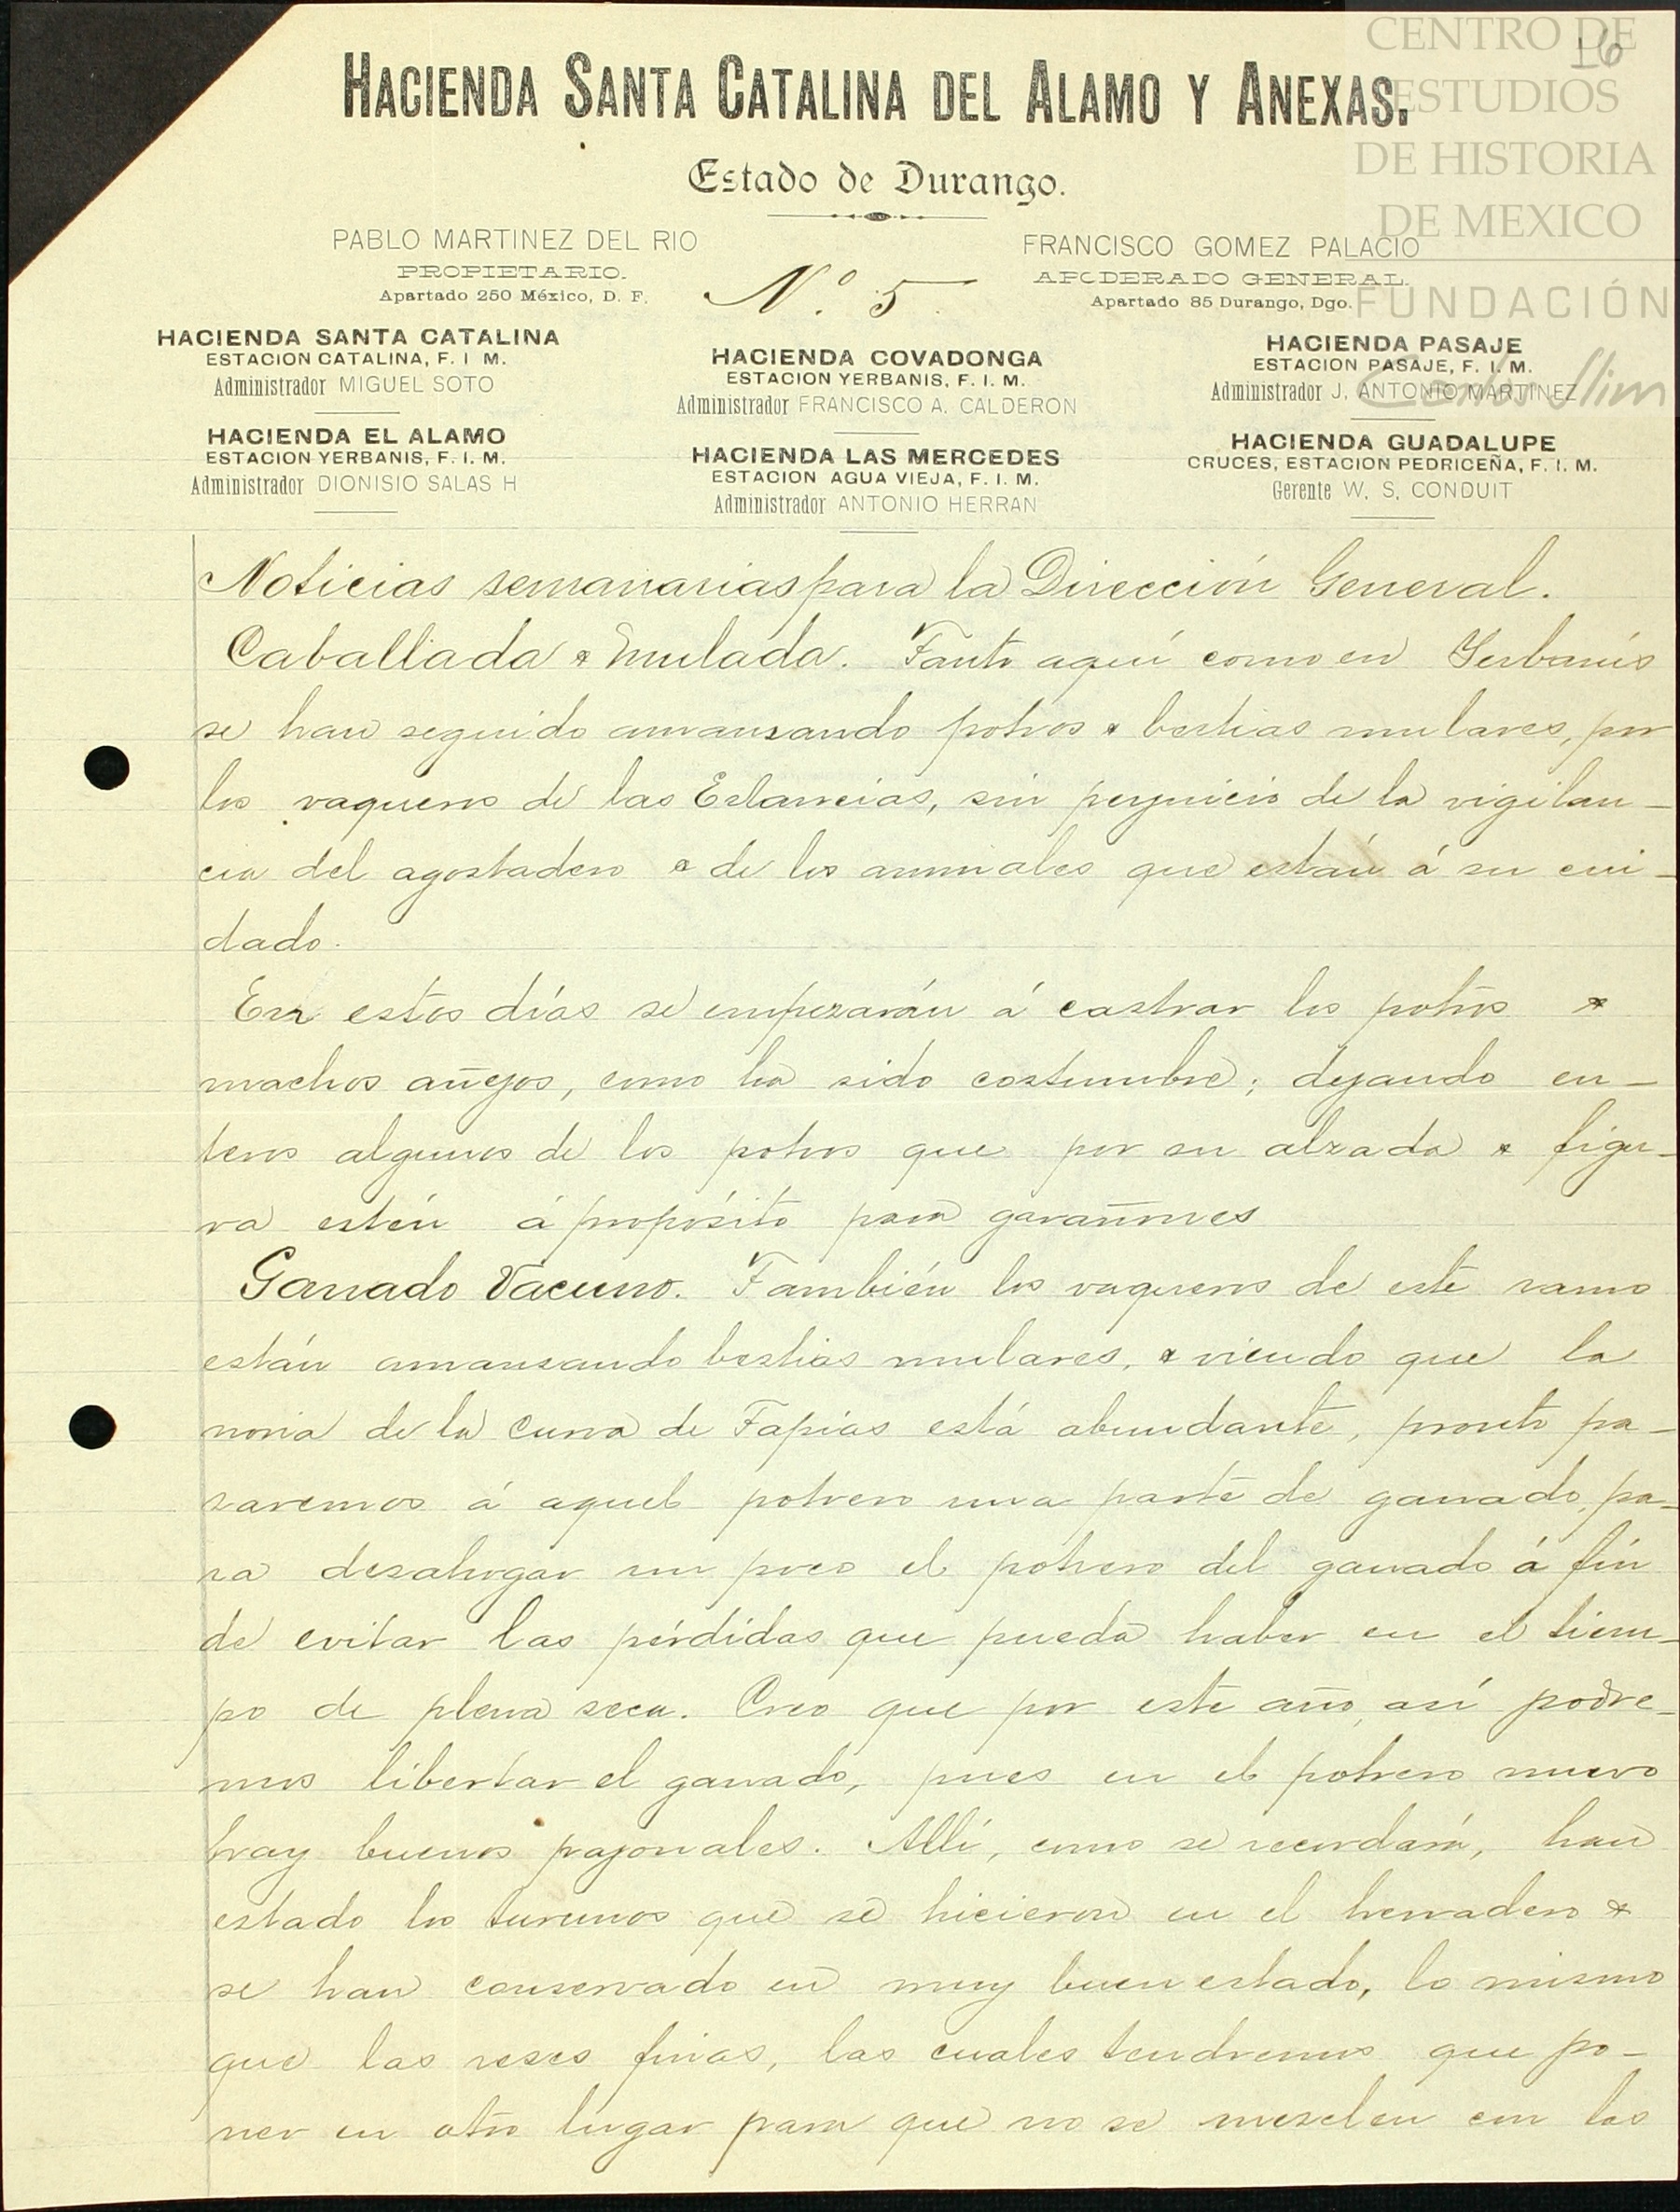 CENTRO DE
ESTUDIOS
DE HISTORIA
DE MEXICO
FUNDACIÓN
Carlos Slim
16
HACIENDA SANTA CATALINA DEL ALAMO Y ANEXAS.
Estado de Durango.
PABLO MARTINEZ DEL RIO
PROPIETARIO.
Apartado 250 México, D. F.
Nº. 5.
FRANCISCO GOMEZ PALACIO
APODERADO GENERAL.
Apartado 85 Durango, Dgo.
HACIENDA SANTA CATALINA
ESTACION CATALINA, F. I M.
Administrador MIGUEL SOTO
HACIENDA EL ALAMO
ESTACION YERBANIS, F. I. M.
Administrador DIONISIO SALAS H
HACIENDA COVADONGA
ESTACION YERBANIS, F. I. M.
Administrador FRANCISCO A. CALDERON
HACIENDA LAS MERCEDES
ESTACION AGUA VIEJA, F. I. M.
Administrador ANTONIO HERRAN
HACIENDA PASAJE
ESTACION PASAJE, F. I. M.
Administrador J. ANTONIO MARTINEZ
HACIENDA GUADALUPE
CRUCES, ESTACION PEDRICEÑA, F. I. M.
Gerente W. S. CONDUIT
Noticias semanarias para la Dirección General.
Caballada & mulada. Tanto aquí como en Yerbanís
se han seguido amansando potros & bestias mulares, por
los vaqueros de las Estancias, sin perjuicio de la vigilan-
cia del agostadero & de los animales que están á su cui-
dado.
En estos días se empezarán á castrar los potros &
machos añejos, como ha sido costumbre; dejando en-
teros algunos de los potros que por su alzada & figu-
ra estén á propósito para garañones
Ganado Vacuno. También los vaqueros de este ramo
están amansando bestias mulares, & viendo que la
noria de la Curva de Tapias está abundante, pronto pa-
saremos á aquel potrero una parte de ganado, pa-
ra desahogar un poco el potrero del ganado á fin
de evitar las pérdidas que pueda haber en el tiem-
po de plena seca. Creo que por este año, así podre-
mos libertar el ganado, pues en el potrero nuevo
hay buenos pajonales. Allí, como se recordará, han
estado los turunos que se hicieron en el herradero &
se han conservado en muy buen estado, lo mismo
que las reses finas, las cuales tendremos que po-
ner en otro lugar para que no se mesclen con las